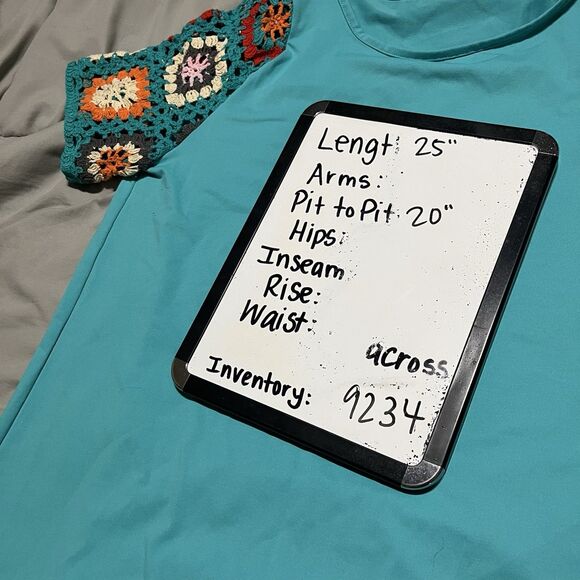 Lengt: 25"
Arms:
Pit to Pit. 20"
Hips:
Inseam
Rise:
Waist:
across
Inventory: 9234